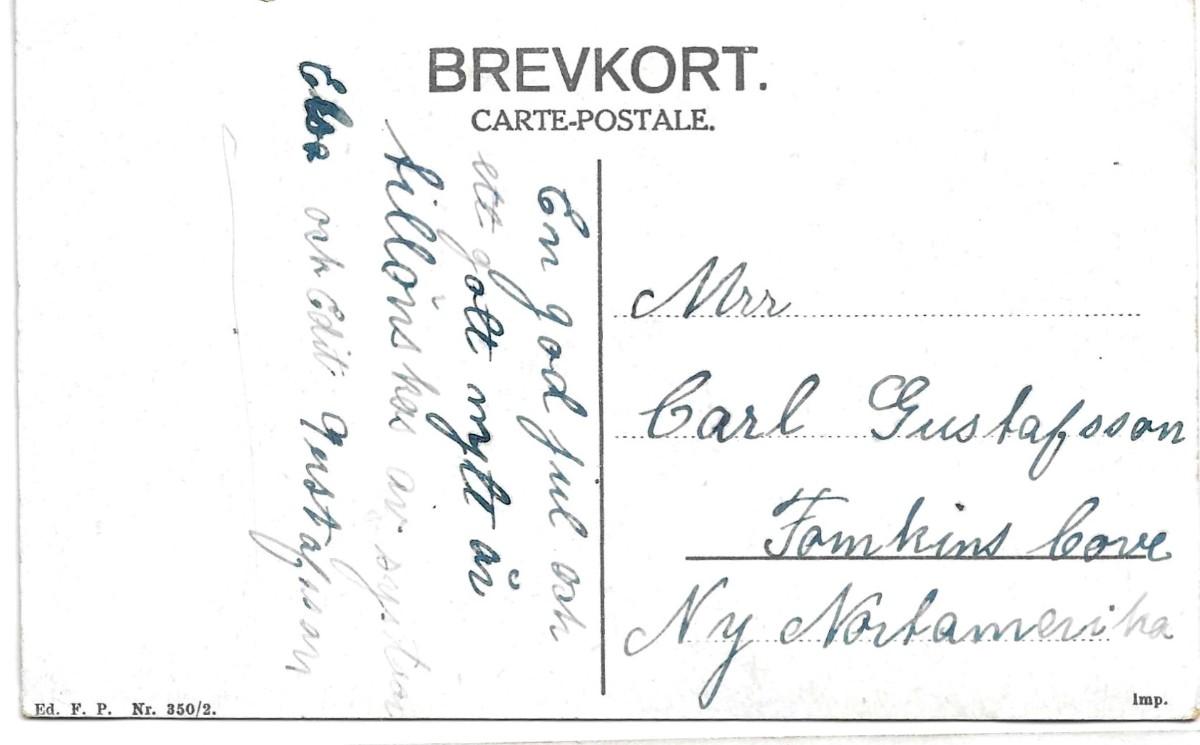 BREVKORT.
CARTE-POSTALE.
En god jul och
ett gott nytt år
tillönskas av systran
Ebba och Edit Gustafsson
Mrr
Carl Gustafsson
Tomkins Cove
Ny Nortamerika
Ed. F. P. Nr. 350/2.
Imp.